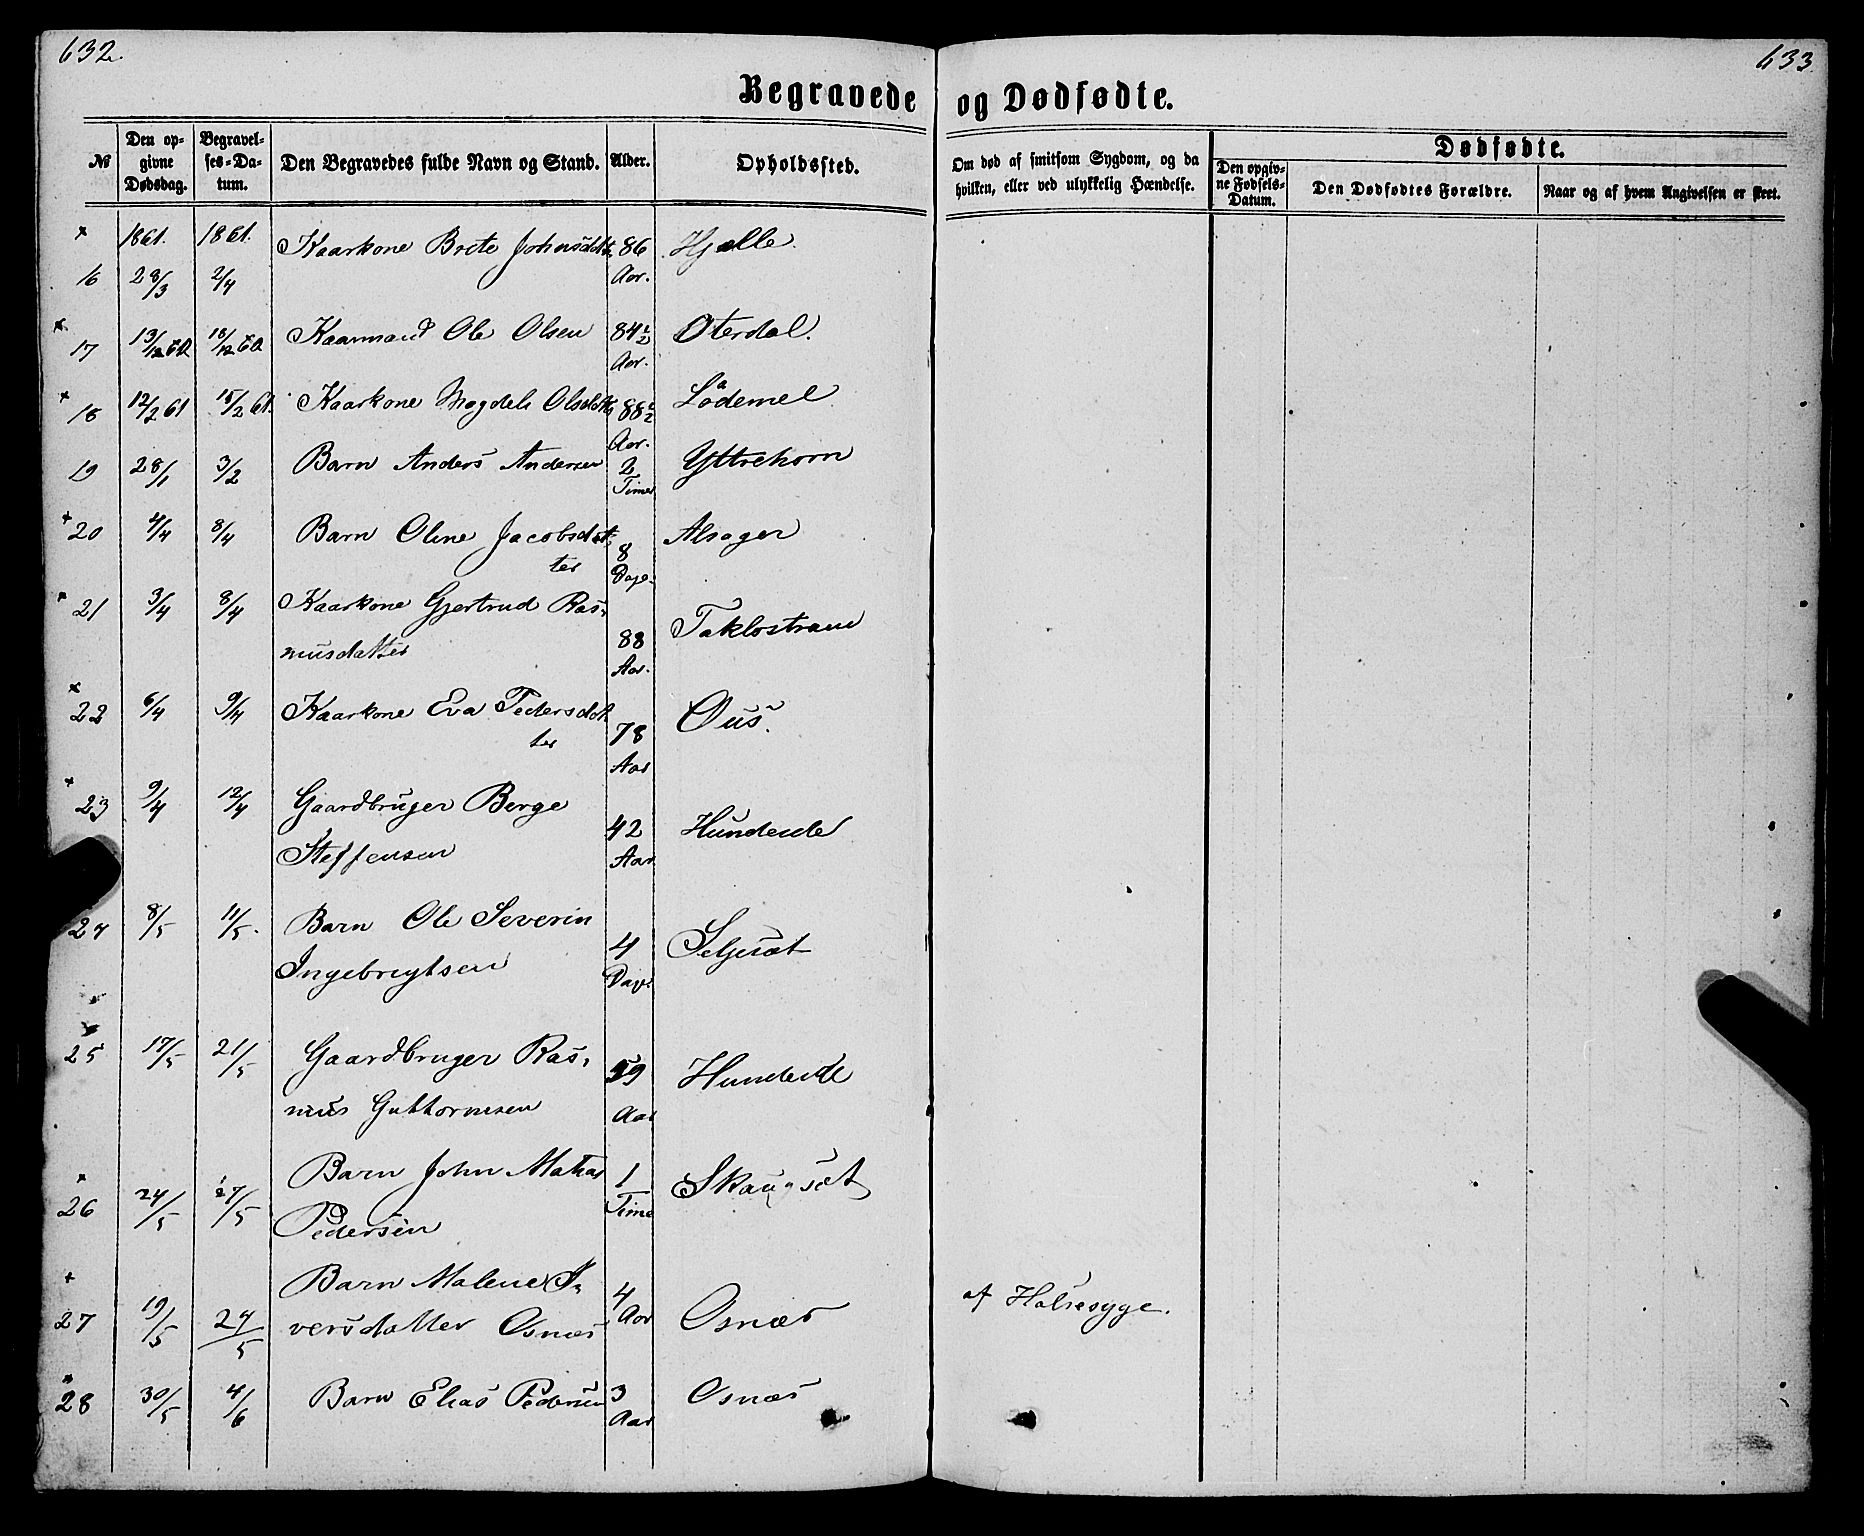 632.
633
Begravede og Dødfødte.
№
Den opgivne Dødsdag.
Begravelses-Datum.
Den Begravedes fulde Navn og Stand.
Alder.
Opholdssted.
Om død af smitsom Sygdom, og da hvilken, eller ved ulykkelig Hændelse.
Dødfødte.
Den opgivne Fødsels-Datum.
Den Dødfødtes Forældre.
Naar og af hvem Angivelsen er skeet.
1861. 1861.
16 28/3 2/4 Kaarkone Brite Johnsdtt. 86 Aar. Hjelle
17 13/12 60 18/12 60 Kaarmand Ole Olsen 84 1/2 Aar. Oterdal.
18 12/2 61 15/2 61. Kaarkone Magdele Olsdtt 88 1/2 Aar. Lødemel
19 28/1 3/2 Barn Anders Andersen 2 Timer Yttrehorn
20 4/4 8/4 Barn Oline Jacobsdat
ter 8 Dage. Alsager
21 3/4 8/4 Kaarkone Gjertrud Ras,
musdatter 88 Aar. Taklostrane
22 6/4 9/4 Kaarkone Eva Pedersdat
ter 78 Aar Ous.
23 9/4 12/4 Gaardbruger Berge
Steffensen 42 Aar Hundeide
24 8/5 11/5. Barn Ole Severin
Ingebrigtsen 4 Dage Seljesæt
25 17/5 21/5 Gaardbruger Ras,
mus Guttormsen 59 Aar Hundeide
26 24/5 27/5 Barn John Matias
Pedersen 1 Time Skaugsæt
27 19/5 24/5 Barn Malene I,
versdatter Osnæs 4 Aar Osnæs af Halsesyge.
28 30/5 4/6 Barn Elias Pedersen 3 Aar Osnæs